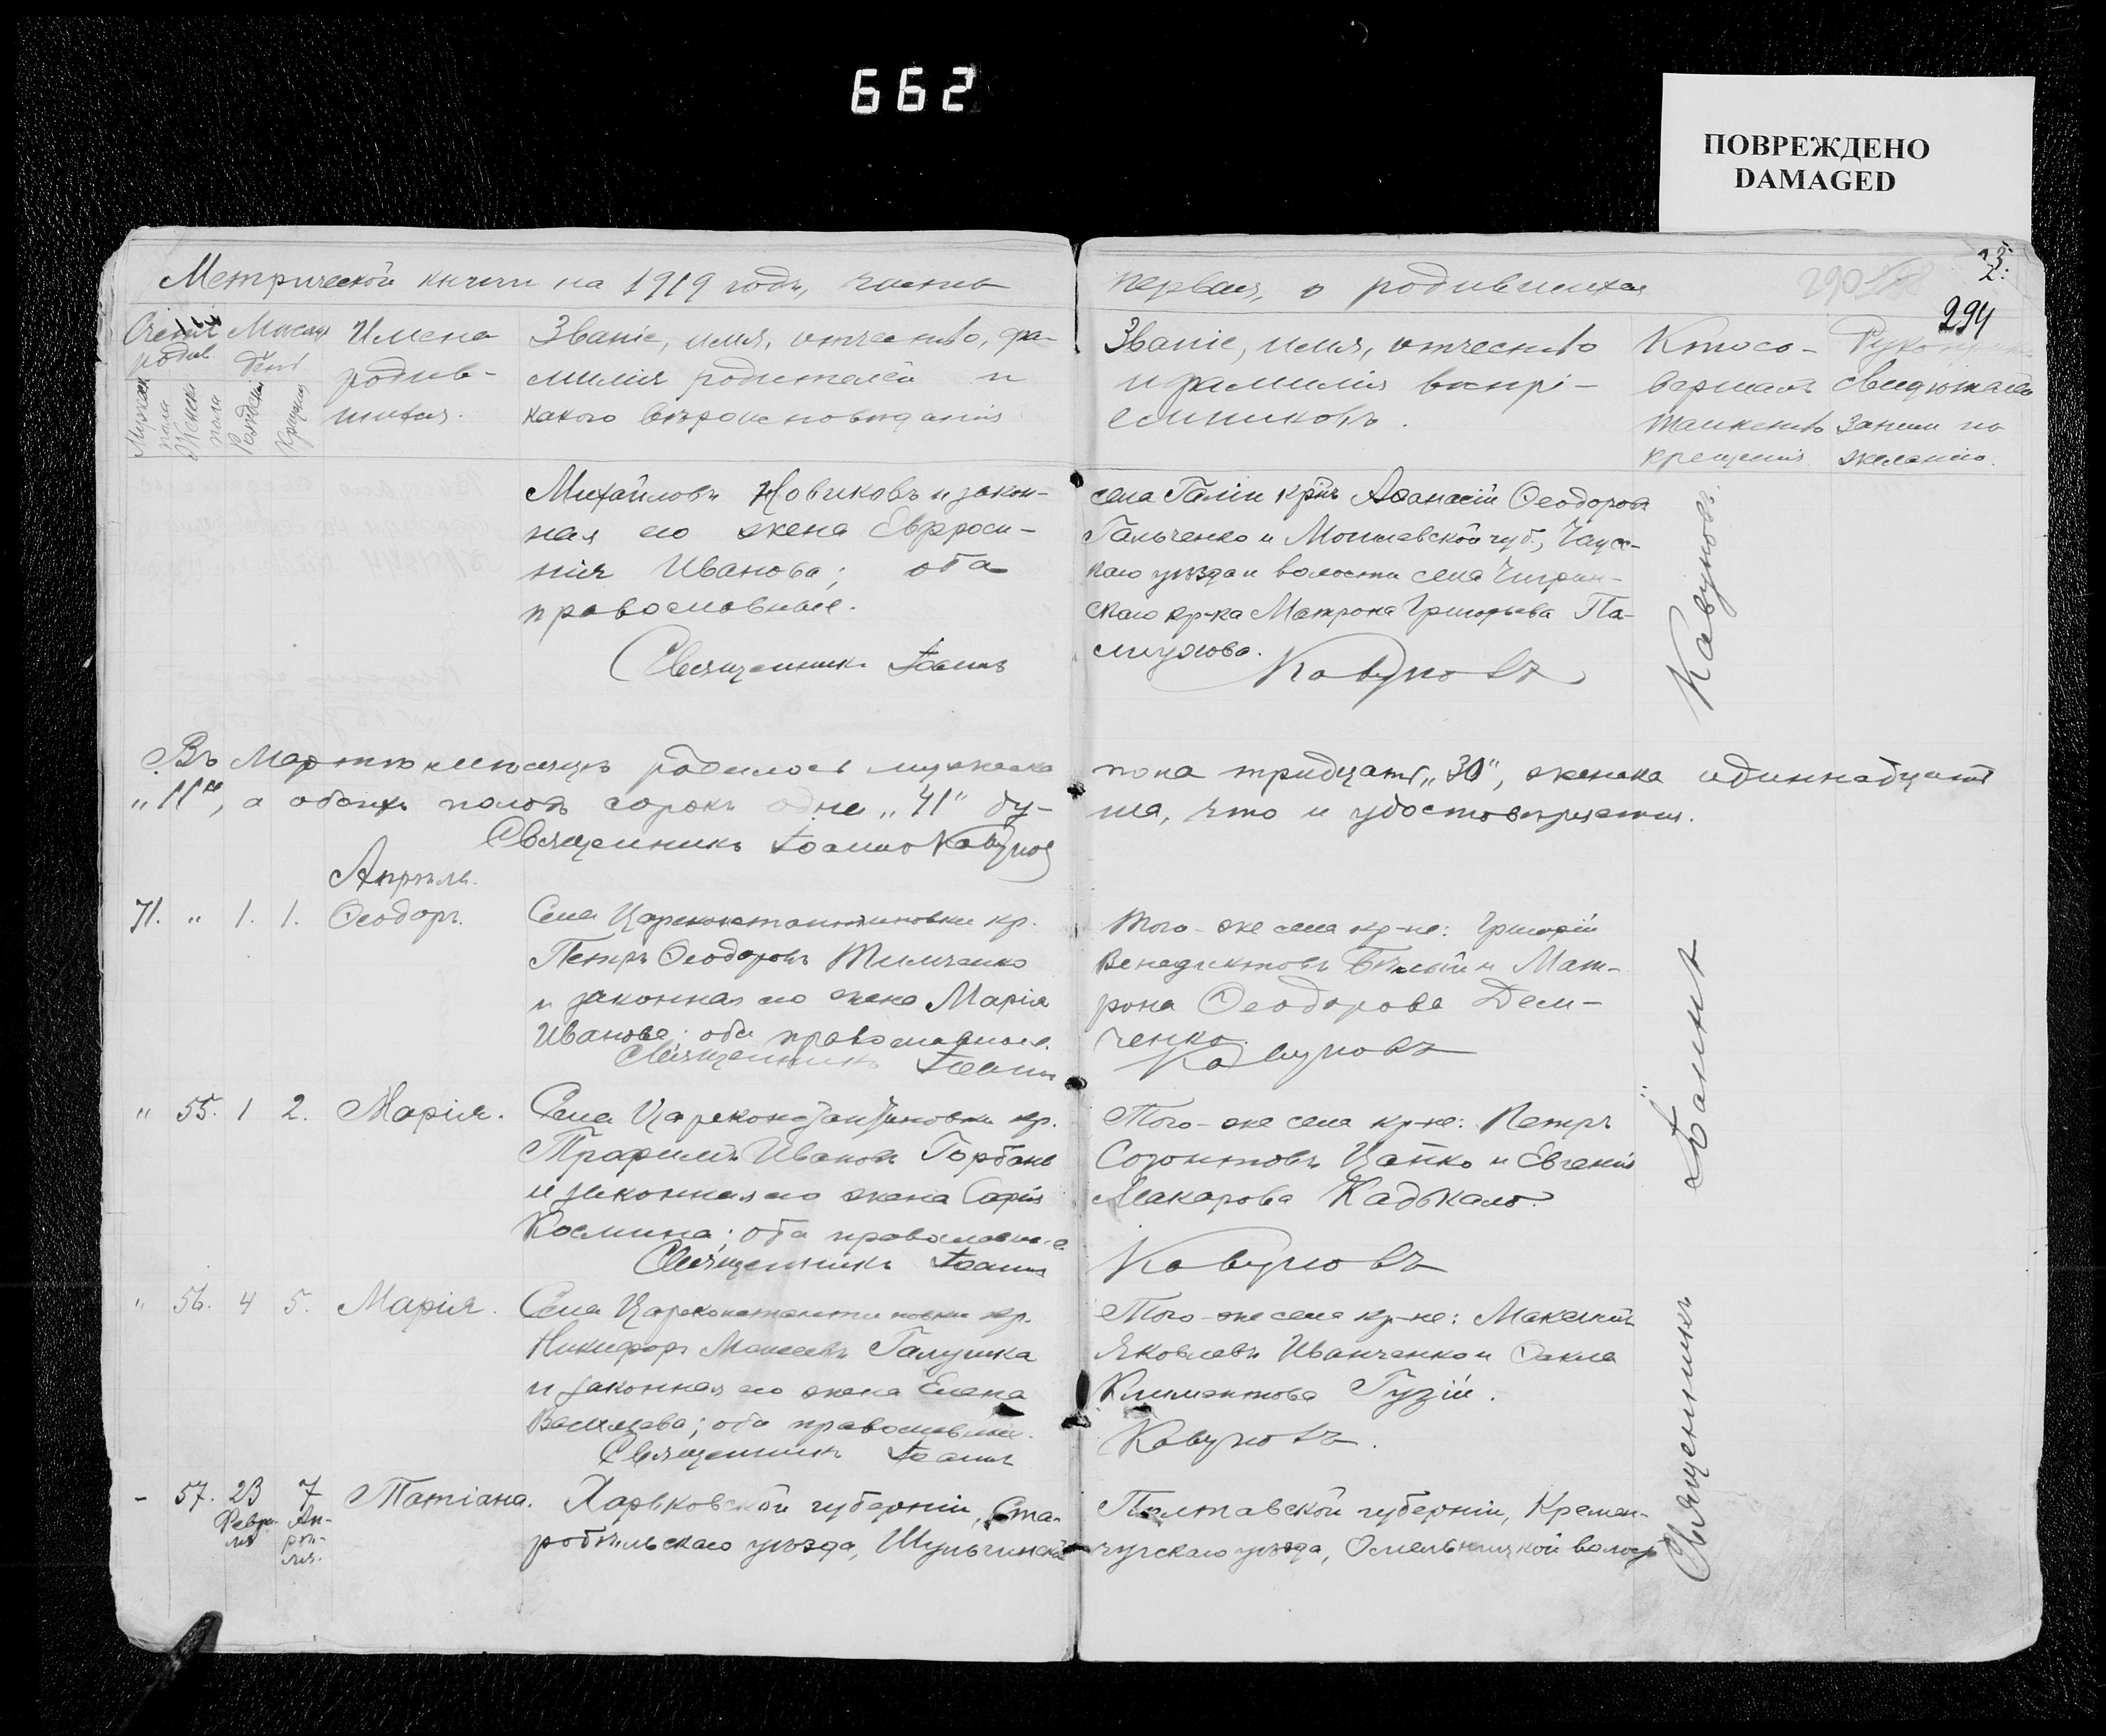 662
ПОВРЕЖДЕНО
DAMAGED
25.
294
Метрической книги на 1919 годъ, часть первая, о родившихся
Счетъ родив. Мѣсяцъ День Имена родив-
шихся.
Мужска пола Женска пола Рожденія Крещенія
Званіе, имя, отчество, фа-
милія родителей и
какого вѣроисповѣданія
Званіе, имя, отчество
и фамилія воспрі-
емниковъ.
Кто со-
вершалъ
таинство
крещенія
свидѣтелей
записи по
желанію.
Михайловъ Новиковъ и закон-
ная его жена Евфроси-
нія Иванова; оба
православные.
Священникъ Іоаннъ
села Галіи кр-нъ Аѳанасій Ѳеодоровъ
Гальченко и Могилевской губ., Чаус-
каго уѣзда и волости села
кр-ка Матрона Григорьева Па-
Кавуновъ
Въ Мартѣ мѣсяцѣ родилось мужеска пола тридцать „30“, женска одиннадцать
„11“, а обоихъ половъ сорокъ одна „41“ ду-
ша, что и удостовѣряется.
Священникъ Іоаннъ Кавуновъ
Апрѣль.
71. „ 1. 1. Ѳеодоръ.
Села Цареконстантиновки кр.
Петръ Ѳеодоровъ Тимченко
и законная его жена Марія
Иванова; оба православные.
Священникъ Іоаннъ
Того-же села кр-не: Григорій
Венедиктовъ Бѣлый и Мат-
рона Ѳеодорова Дем-
ченко.
Кавуновъ
„ 55. 1 2. Марія.
Села Цареконстантиновки кр.
Трофимъ Ивановъ Горбань
и законная его жена Софія
Космина; оба православные
Священникъ Іоаннъ
Того-же села кр-не: Петръ
Созонтовъ Цапко и Евгенія
Макарова Кадькало.
Кавуновъ
„ 56. 4 5. Марія.
Села Цареконстантиновки кр.
Никифоръ Моисеевъ Галушка
и законная его жена Елена
Васильева; оба православные.
Священникъ Іоаннъ
Того-же села кр-не: Максимъ
Яковлевъ Иванченко и Ѳекла
Климентова Гузій.
Кавуновъ.
- 57. 23 Февраля 7 Апрѣля. Татіана.
Харьковской губерніи, Ста-
робѣльскаго уѣзда, Шульгинской
Полтавской губерніи, Кремен-
чугскаго уѣзда, Омельницкой волос.
Священникъ Іоаннъ Кавуновъ.